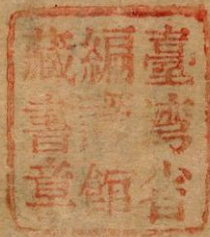 臺灣省
編譯館
藏書章